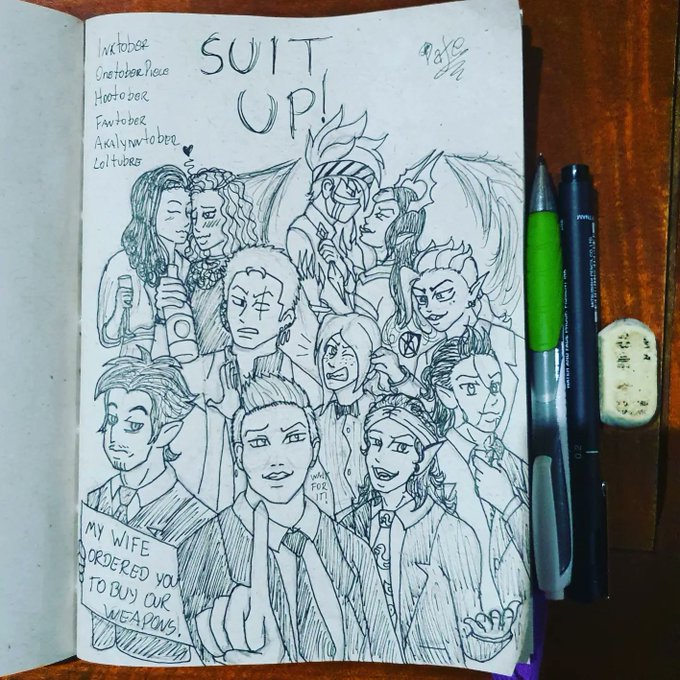 Inktober
OnetoberPiece
Hootober
Fantober
Akalynntober
Loltubre
SUIT
UP!
WAIT
FOR
IT!
MY WIFE
ORDERED YOU
TO BUY OUR
WEAPONS.
0.2